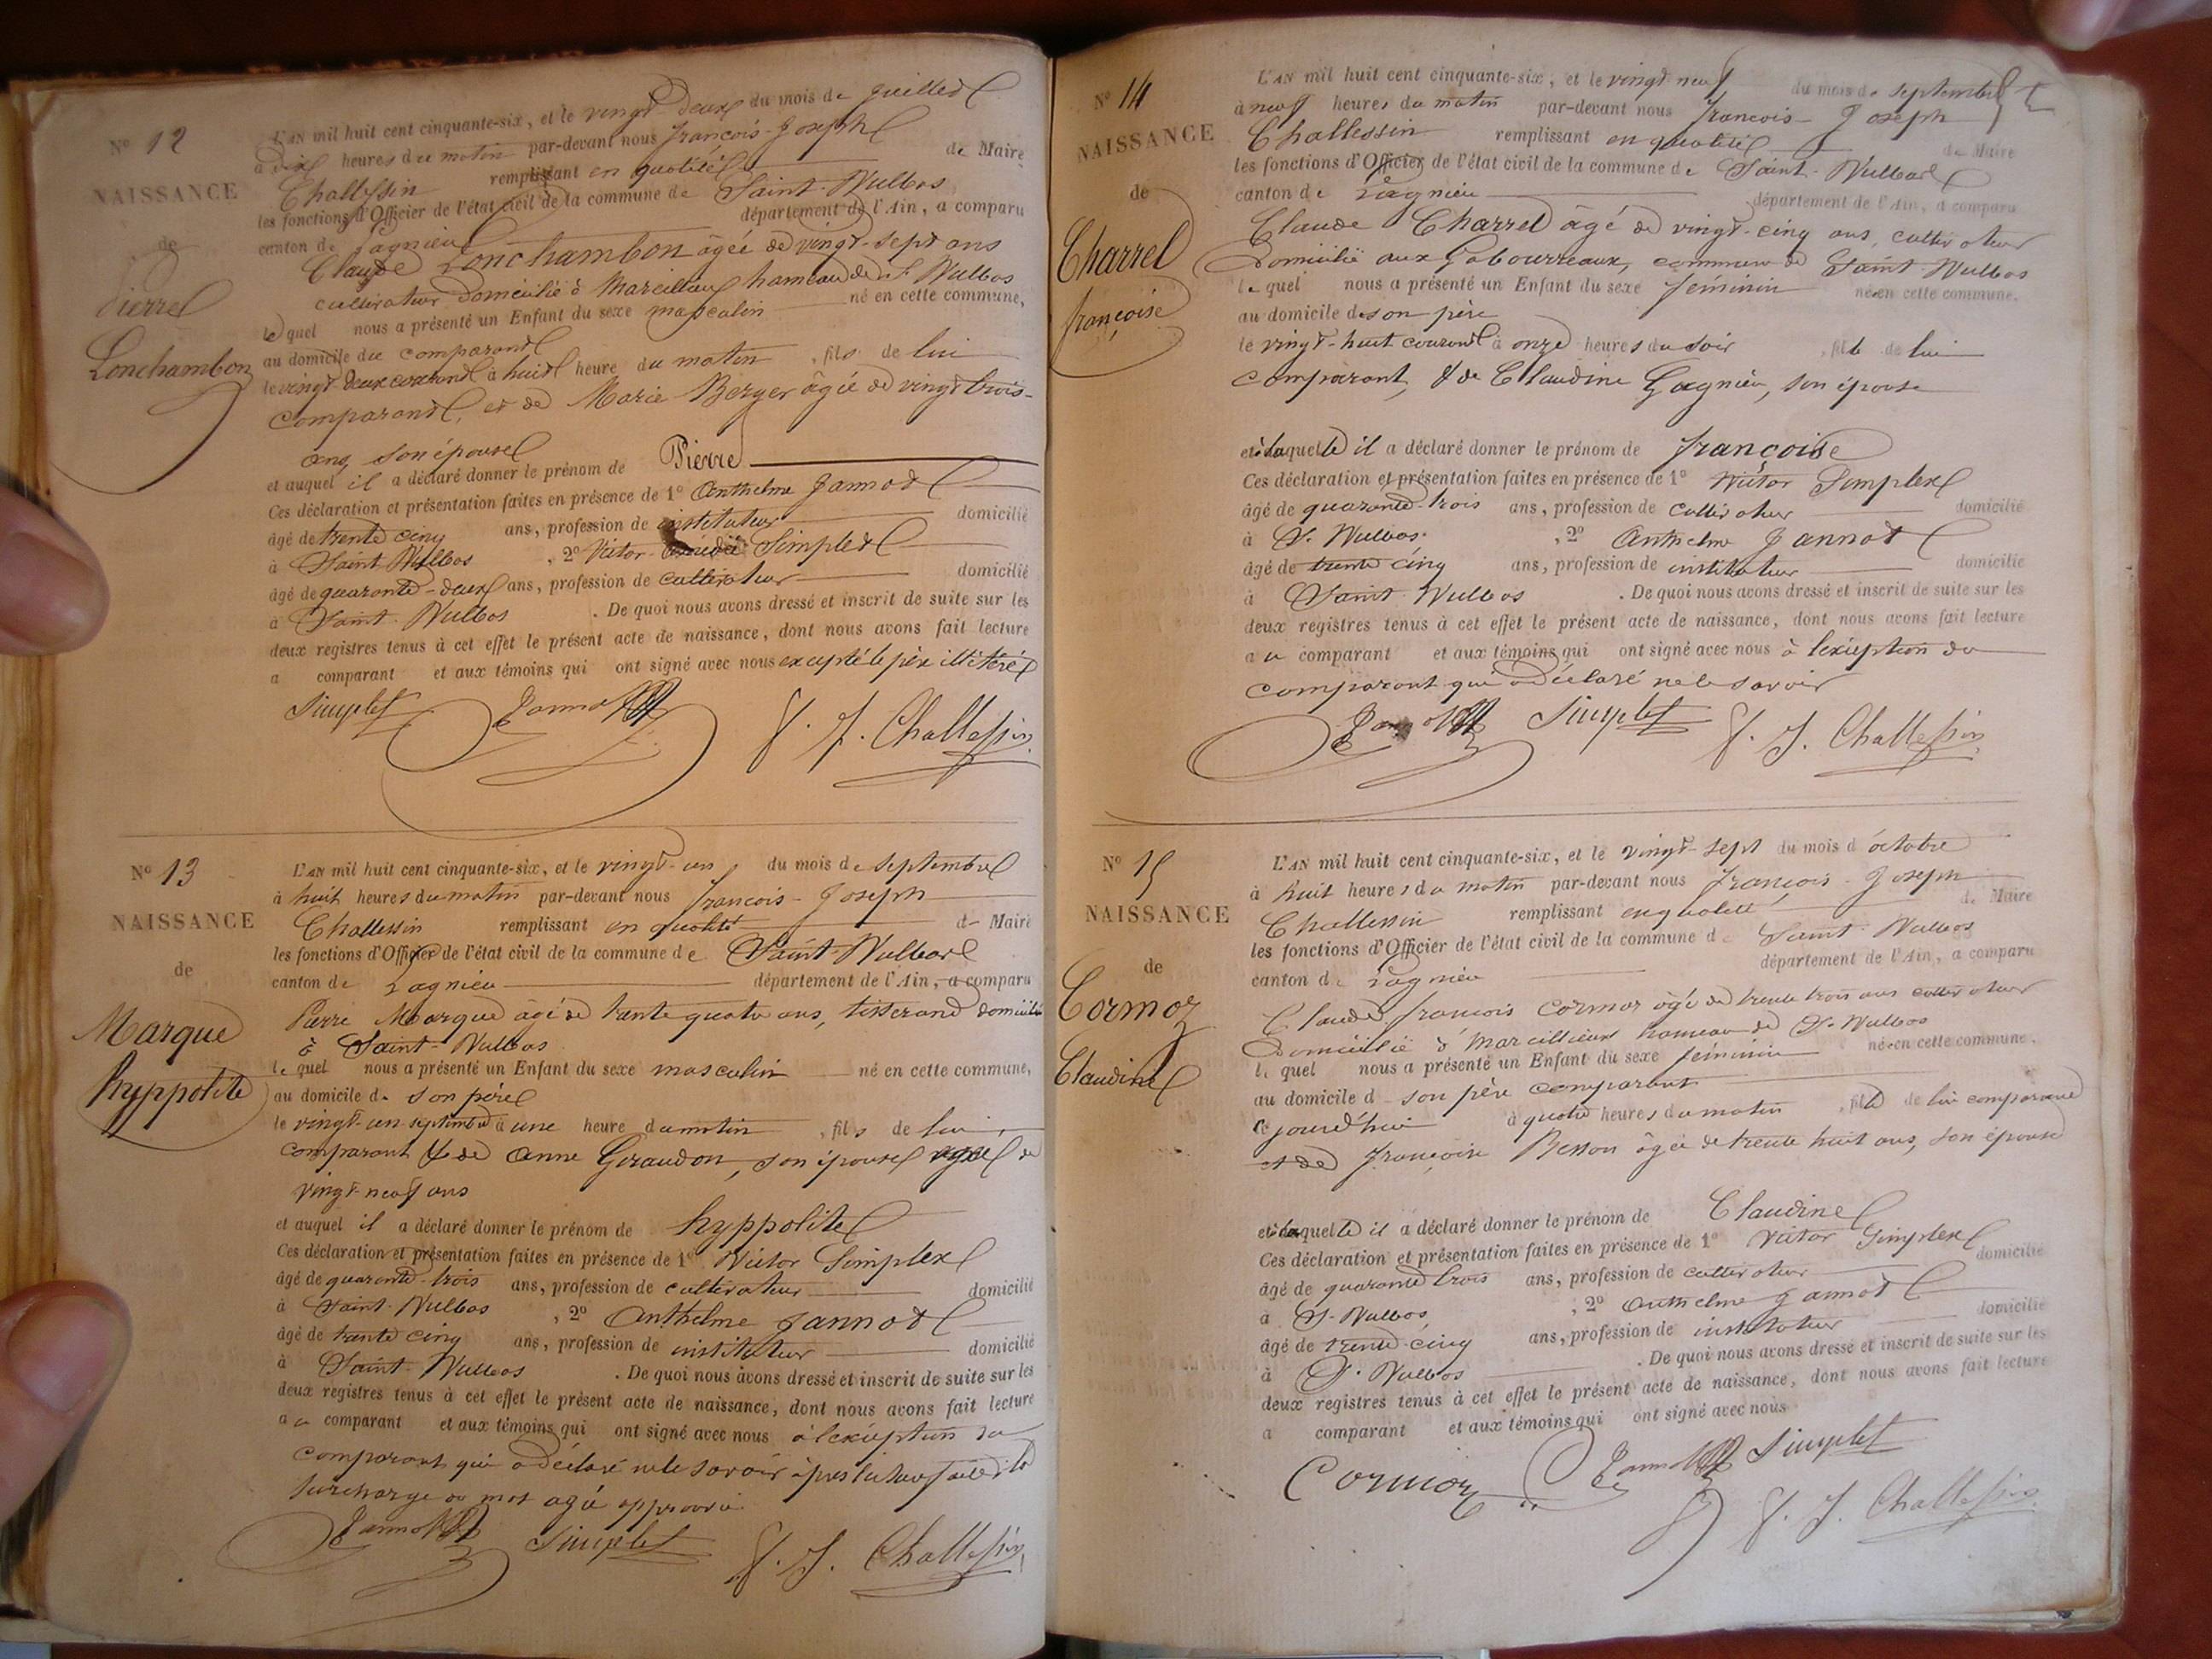 N° 12
NAISSANCE
de
Pierre
Lonchambon
L'AN mil huit cent cinquante-six, et le vingt-deux du mois de juillet
à dix heures du matin par-devant nous françois-Joseph
Challessin remplissant en qualité de Maire
les fonctions d'Officier de l'état civil de la commune de Saint-Vulbas
canton de Lagnieu département de l'Ain, a comparu
Claude Lonchambon âgée de vingt-sept ans
cultivateur domicilié à Marcillieux hameau de St Vulbas
lequel nous a présenté un Enfant du sexe masculin né en cette commune,
au domicile du comparant
le vingt-deux courant à huit heure du matin, fils de lui
comparant, et de Marie Berger âgée de vingt trois-
ans, son épouse
et auquel il a déclaré donner le prénom de Pierre
Ces déclaration et présentation faites en présence de 1° Anthelme Jannot
âgé de trente cinq ans, profession de instituteur domicilié
à Saint Vulbas, 2° Victor-Amédée Simplet
âgé de quarante-deux ans, profession de cultivateur domicilié
à Saint-Vulbas. De quoi nous avons dressé et inscrit de suite sur les
deux registres tenus à cet effet le présent acte de naissance, dont nous avons fait lecture
a comparant et aux témoins qui ont signé avec nous excepté le père illitéré
Simplet Jannot f. J. Challessin
N° 13
NAISSANCE
de
Marque
hyppolite
L'AN mil huit cent cinquante-six, et le vingt-un du mois de septembre
à huit heures du matin par-devant nous françois-Joseph
Challessin remplissant en qualité de Maire
les fonctions d'Officier de l'état civil de la commune de Saint-Vulbas
canton de Lagnieu département de l'Ain, a comparu
Pierre Marque âgé de trente quatre ans, tisserand domicilié
à Saint-Vulbas
lequel nous a présenté un Enfant du sexe masculin né en cette commune,
au domicile de son père
le vingt-un septembre à une heure du matin, fils de lui
comparant & de Anne Giraudon, son épouse agée de
vingt-neuf ans
et auquel il a déclaré donner le prénom de hyppolite
Ces déclaration et présentation faites en présence de 1° Victor Simplex
âgé de quarante-trois ans, profession de cultivateur domicilié
à Saint-Vulbas, 2° Anthelme Jannot
âgé de trente cinq ans, profession de instituteur domicilié
à Saint-Vulbas. De quoi nous avons dressé et inscrit de suite sur les
deux registres tenus à cet effet le présent acte de naissance, dont nous avons fait lecture
au comparant et aux témoins qui ont signé avec nous à l'exception du
comparant qui a déclaré ne le savoir après lecture faite de la
surcharge du mot agé approuvé
Jannot Simplet f. J. Challessin
N° 14
NAISSANCE
de
Charrel
françoise
L'AN mil huit cent cinquante-six, et le vingt neuf du mois de septembre
à neuf heures du matin par-devant nous françois-Joseph
Challessin remplissant en qualité de Maire
les fonctions d'Officier de l'état civil de la commune de Saint-Vulbas
canton de Lagnieu département de l'Ain, a comparu
Claude Charrel âgé de vingt-cinq ans, cultivateur
Domicilié aux Gabourreaux, commune de Saint-Vulbas
lequel nous a présenté un Enfant du sexe féminin née en cette commune.
au domicile de son père
le vingt-huit courant à onze heures du soir, fille de lui
comparant, & de Claudine Gagnieu, son épouse
et à laquelle il a déclaré donner le prénom de françoise
Ces déclaration et présentation faites en présence de 1° Victor Simplex
âgé de quarante-trois ans, profession de cultivateur domicilié
à St. Vulbas, 2° Anthelme Jannot
âgé de trente cinq ans, profession de instituteur domicilié
à Saint-Vulbas. De quoi nous avons dressé et inscrit de suite sur les
deux registres tenus à cet effet le présent acte de naissance, dont nous avons fait lecture
au comparant et aux témoins qui ont signé avec nous à l'exception du
comparant qui a déclaré ne le savoir
Jannot Simplet f. J. Challessin
N° 15
NAISSANCE
de
Cormoz
Claudine
L'AN mil huit cent cinquante-six, et le vingt-sept du mois d'octobre
à huit heures du matin par-devant nous françois-Joseph
Challessin remplissant en qualité de Maire
les fonctions d'Officier de l'état civil de la commune d Saint-Vulbas
canton de Lagnieu département de l'Ain, a comparu
Claude françois Cormoz âgé de trente trois ans cultivateur
Domicilié à Marcillieux hameau de St-Vulbas
lequel nous a présenté un Enfant du sexe féminin née en cette commune.
au domicile d son père comparant
ce jourd'hui à quatre heures du matin, fille de lui comparant
et de françoise Besson âgée de trente huit ans, son épouse
et à laquelle il a déclaré donner le prénom de Claudine
Ces déclaration et présentation faites en présence de 1° Victor Simplex
âgé de quarante trois ans, profession de cultivateur domicilié
à St-Vulbas, 2° Anthelme Jannot
âgé de trente-cinq ans, profession de instituteur domicilié
à St. Vulbas. De quoi nous avons dressé et inscrit de suite sur les
deux registres tenus à cet effet le présent acte de naissance, dont nous avons fait lecture
a comparant et aux témoins qui ont signé avec nous
Cormoz Jannot Simplet
f. J. Challessin